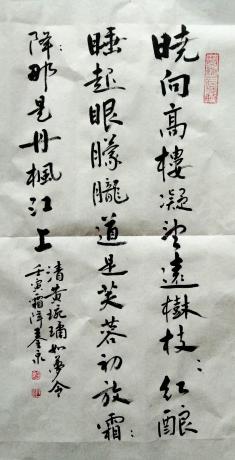 晓向高樓凝望遠樹枝：红酿
睡起眼朦朧道是芙蓉初放霜：
降那是丹楓江上
清黄琬璚如夢令
壬寅霜降奎泉